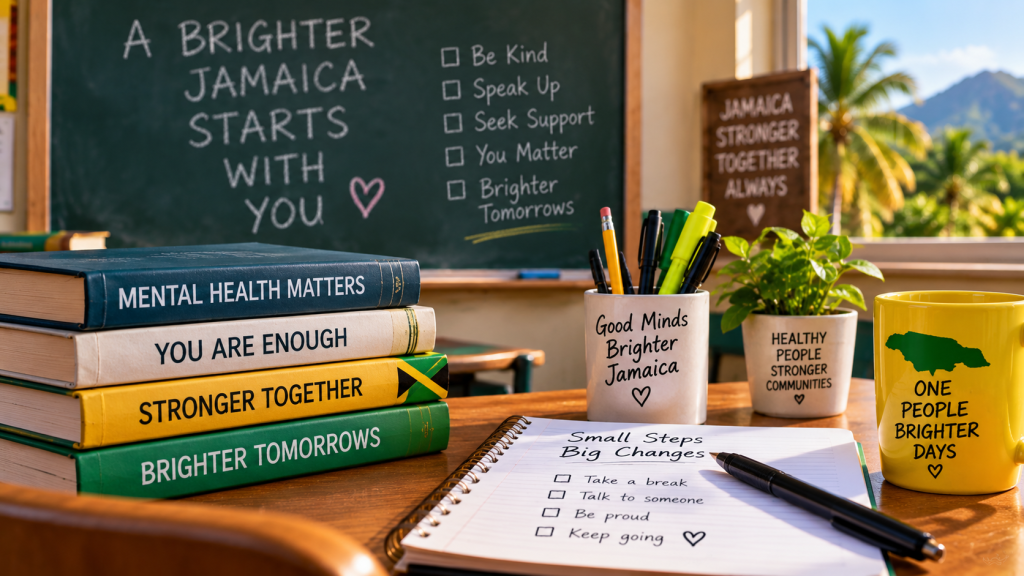 A BRIGHTER
JAMAICA
STARTS
WITH
YOU
Be Kind
Speak Up
Seek Support
You Matter
Brighter
Tomorrows
JAMAICA
STRONGER
TOGETHER
ALWAYS
MENTAL HEALTH MATTERS
YOU ARE ENOUGH
STRONGER TOGETHER
BRIGHTER TOMORROWS
Good Minds
Brighter
Jamaica
HEALTHY
PEOPLE
STRONGER
COMMUNITIES
ONE
PEOPLE
BRIGHTER
DAYS
Small Steps
Big Changes
Take a break
Talk to someone
Be proud
Keep going